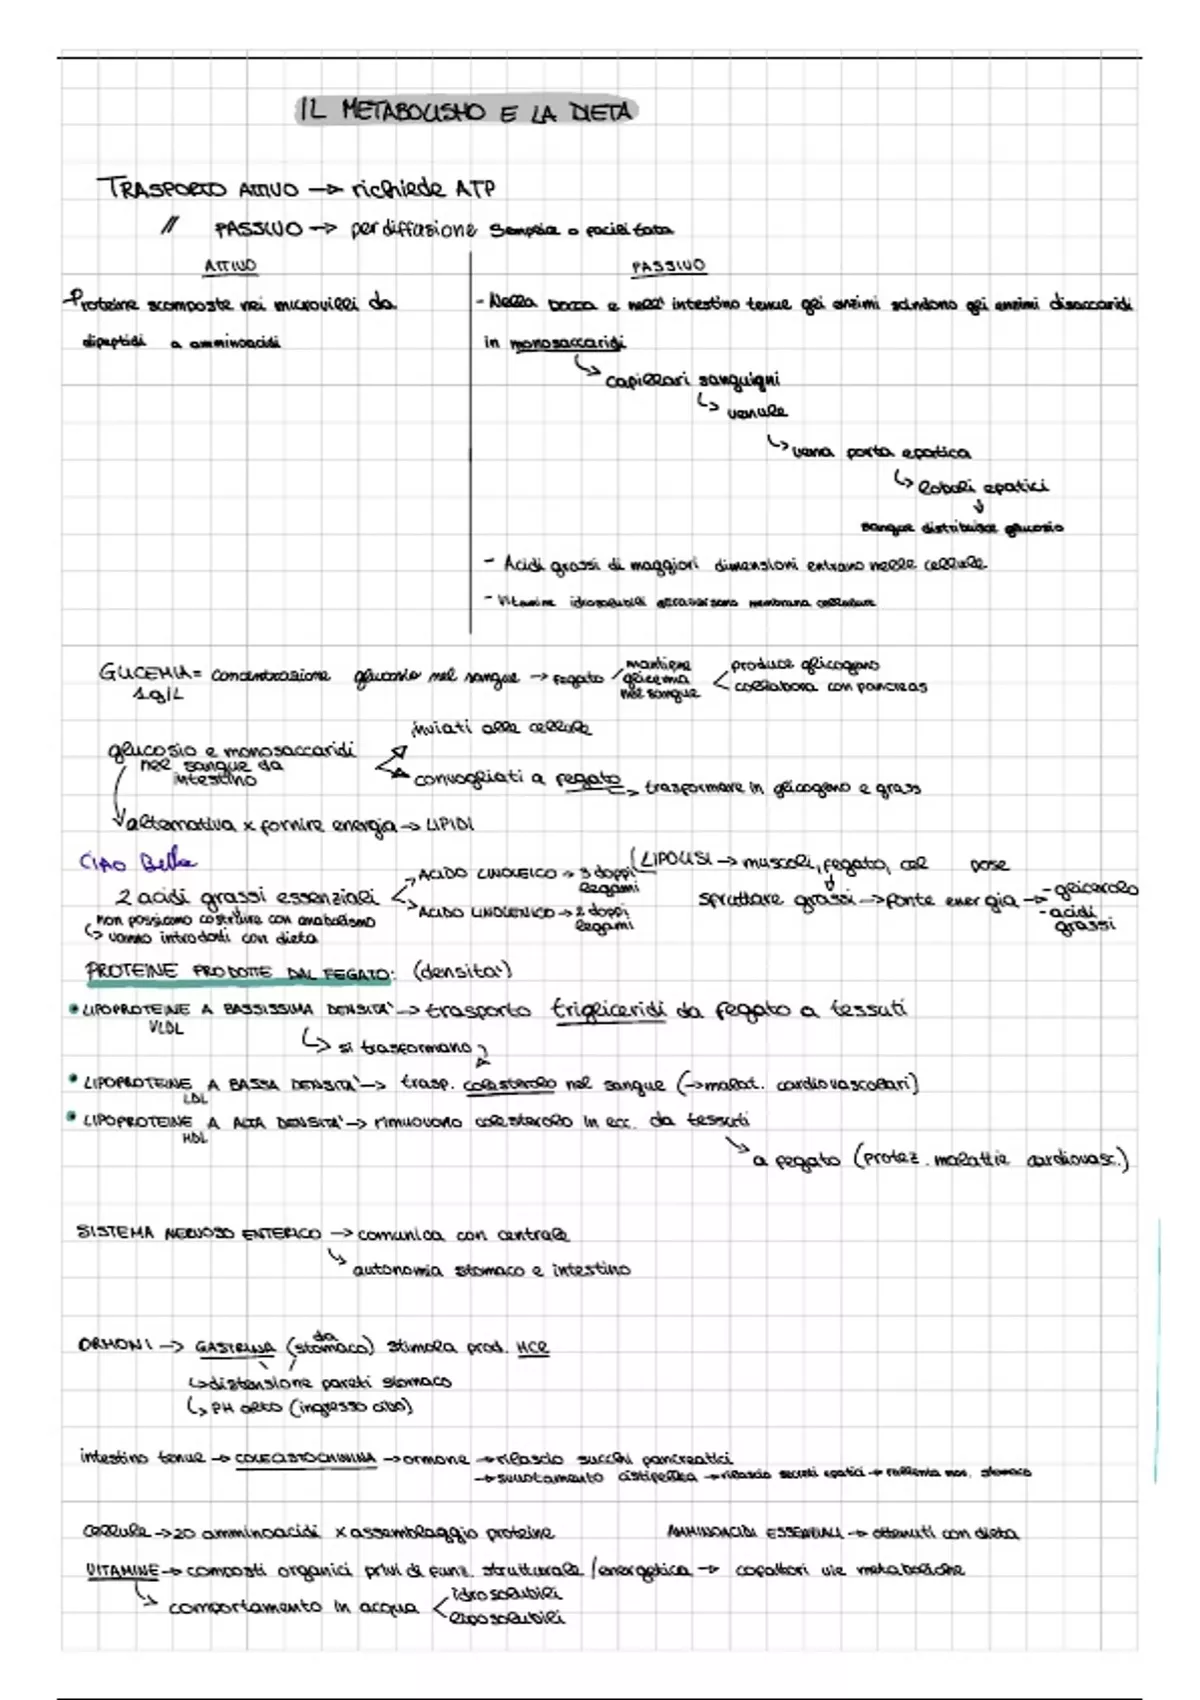 IL METABOLISMO E LA DIETA
TRASPORTO ATTIVO → richiede ATP
// PASSIVO → per diffusione semplice o facilitata
ATTIVO
Proteine scomposte nei microvilli da
dipeptidi a amminoacidi
PASSIVO
- Nella bocca e nell' intestino tenue gli enzimi scindono gli enzimi disaccaridi
in monosaccaridi
↳ capillari sanguigni
↳ venule
↳ vena porta epatica
↳ lobuli epatici
↓
sangue distribuisce glucosio
- Acidi grassi di maggiori dimensioni entrano nelle cellule
- Vitamine idrosolubili attraversano membrana cellulare
GLICEMIA = concentrazione glucosio nel sangue → fegato mantiene glicemia nel sangue < produce glicogeno
collabora con pancreas
1g/L
glucosio e monosaccaridi
nel sangue da
intestino
inviati alle cellule
convogliati a fegato → trasformare in glicogeno e grassi
alternativa x fornire energia → LIPIDI
CIAO Bella
2 acidi grassi essenziali
→ ACIDO LINOLEICO → 3 doppi legami
→ ACIDO LINOLENICO → 2 doppi legami
non possiamo costruire con anabolismo
↳ vanno introdotti con dieta
(LIPOLISI → muscoli, fegato, cel pose
↓
sfruttare grassi → fonte energia → - glicerolo
- acidi grassi
PROTEINE PRODOTTE DAL FEGATO: (densità)
• LIPOPROTEINE A BASSISSIMA DENSITA' → trasporto trigliceridi da fegato a tessuti
VLDL
↳ si trasformano
• LIPOPROTEINE A BASSA DENSITA' → trasp. colesterolo nel sangue (→ malat. cardiovascolari)
LDL
• LIPOPROTEINE A ALTA DENSITA' → rimuovono colesterolo in ecc. da tessuti
HDL
↘ a fegato (protez. malattie cardiovasc.)
SISTEMA NERVOSO ENTERICO → comunica con centrale
↳ autonomia stomaco e intestino
ORMONI → GASTRINA (da stomaco) stimola prod. HCl
↳ distensione pareti stomaco
↳ PH alto (ingresso cibo)
intestino tenue → COLECISTOCHININA → ormone → rilascio succhi pancreatici
→ svuotamento cistifellea → rilascio secreti epatici → rallenta mov. stomaco
cellule → 20 amminoacidi x assemblaggio proteine
AMMINOACIDI ESSENZIALI → ottenuti con dieta
VITAMINE → composti organici privi di funz. strutturale / energetica → cofattori vie metaboliche
↳ comportamento in acqua < idrosolubili
liposolubili